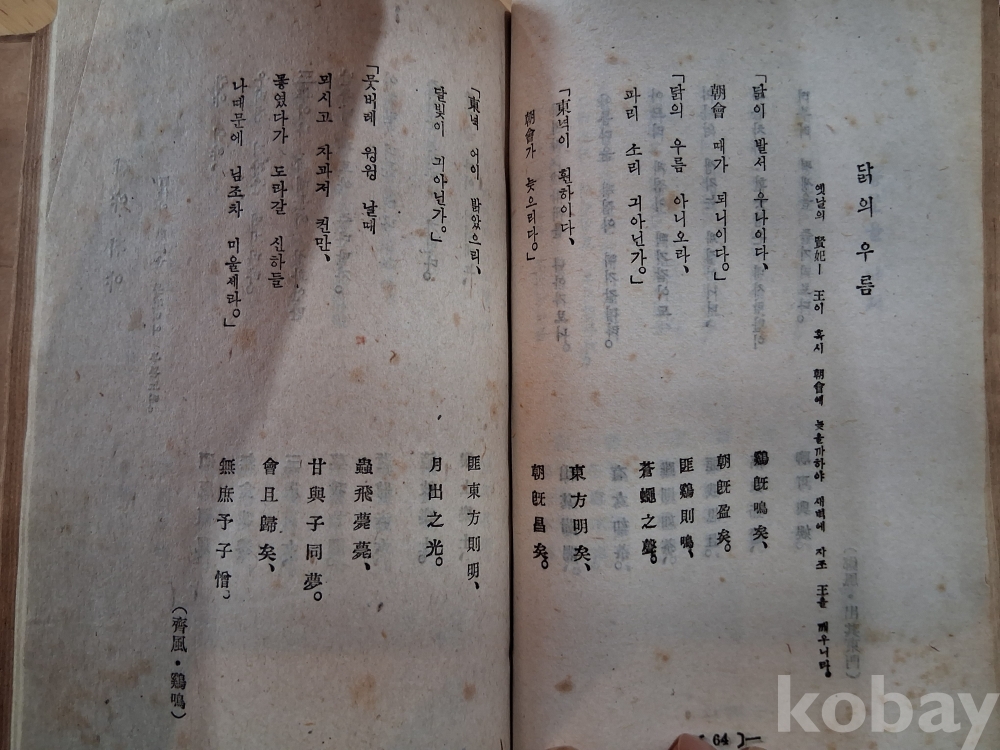 닭의 우름
옛날의 賢妃ㅡ 王이 혹시 朝會에 늦을까하야 새벽에 자조 王을 깨우니라。
「닭이 발서 우나이다、
朝會 때가 되니이다。」
「닭의 우름 아니오라、
파리 소리 긔아닌가。」
「東녁이 훤하이다、
朝會가 늦으리다。」
鷄旣鳴矣、
朝旣盈矣。
匪鷄則鳴、
蒼蠅之聲。
東方明矣、
朝旣昌矣。
64
「東녁 어이 밝았으리、
달빛이 긔아닌가。」
「뭇버레 윙윙 날때
뫼시고 자과저 컨만、
뫃였다가 도라갈 신하들
나때문에 님조차 미울세라。」
匪東方則明、
月出之光。
蟲飛薨薨、
甘與子同夢。
會且歸矣、
無庶予子憎。
(齊風・鷄鳴)
kobay